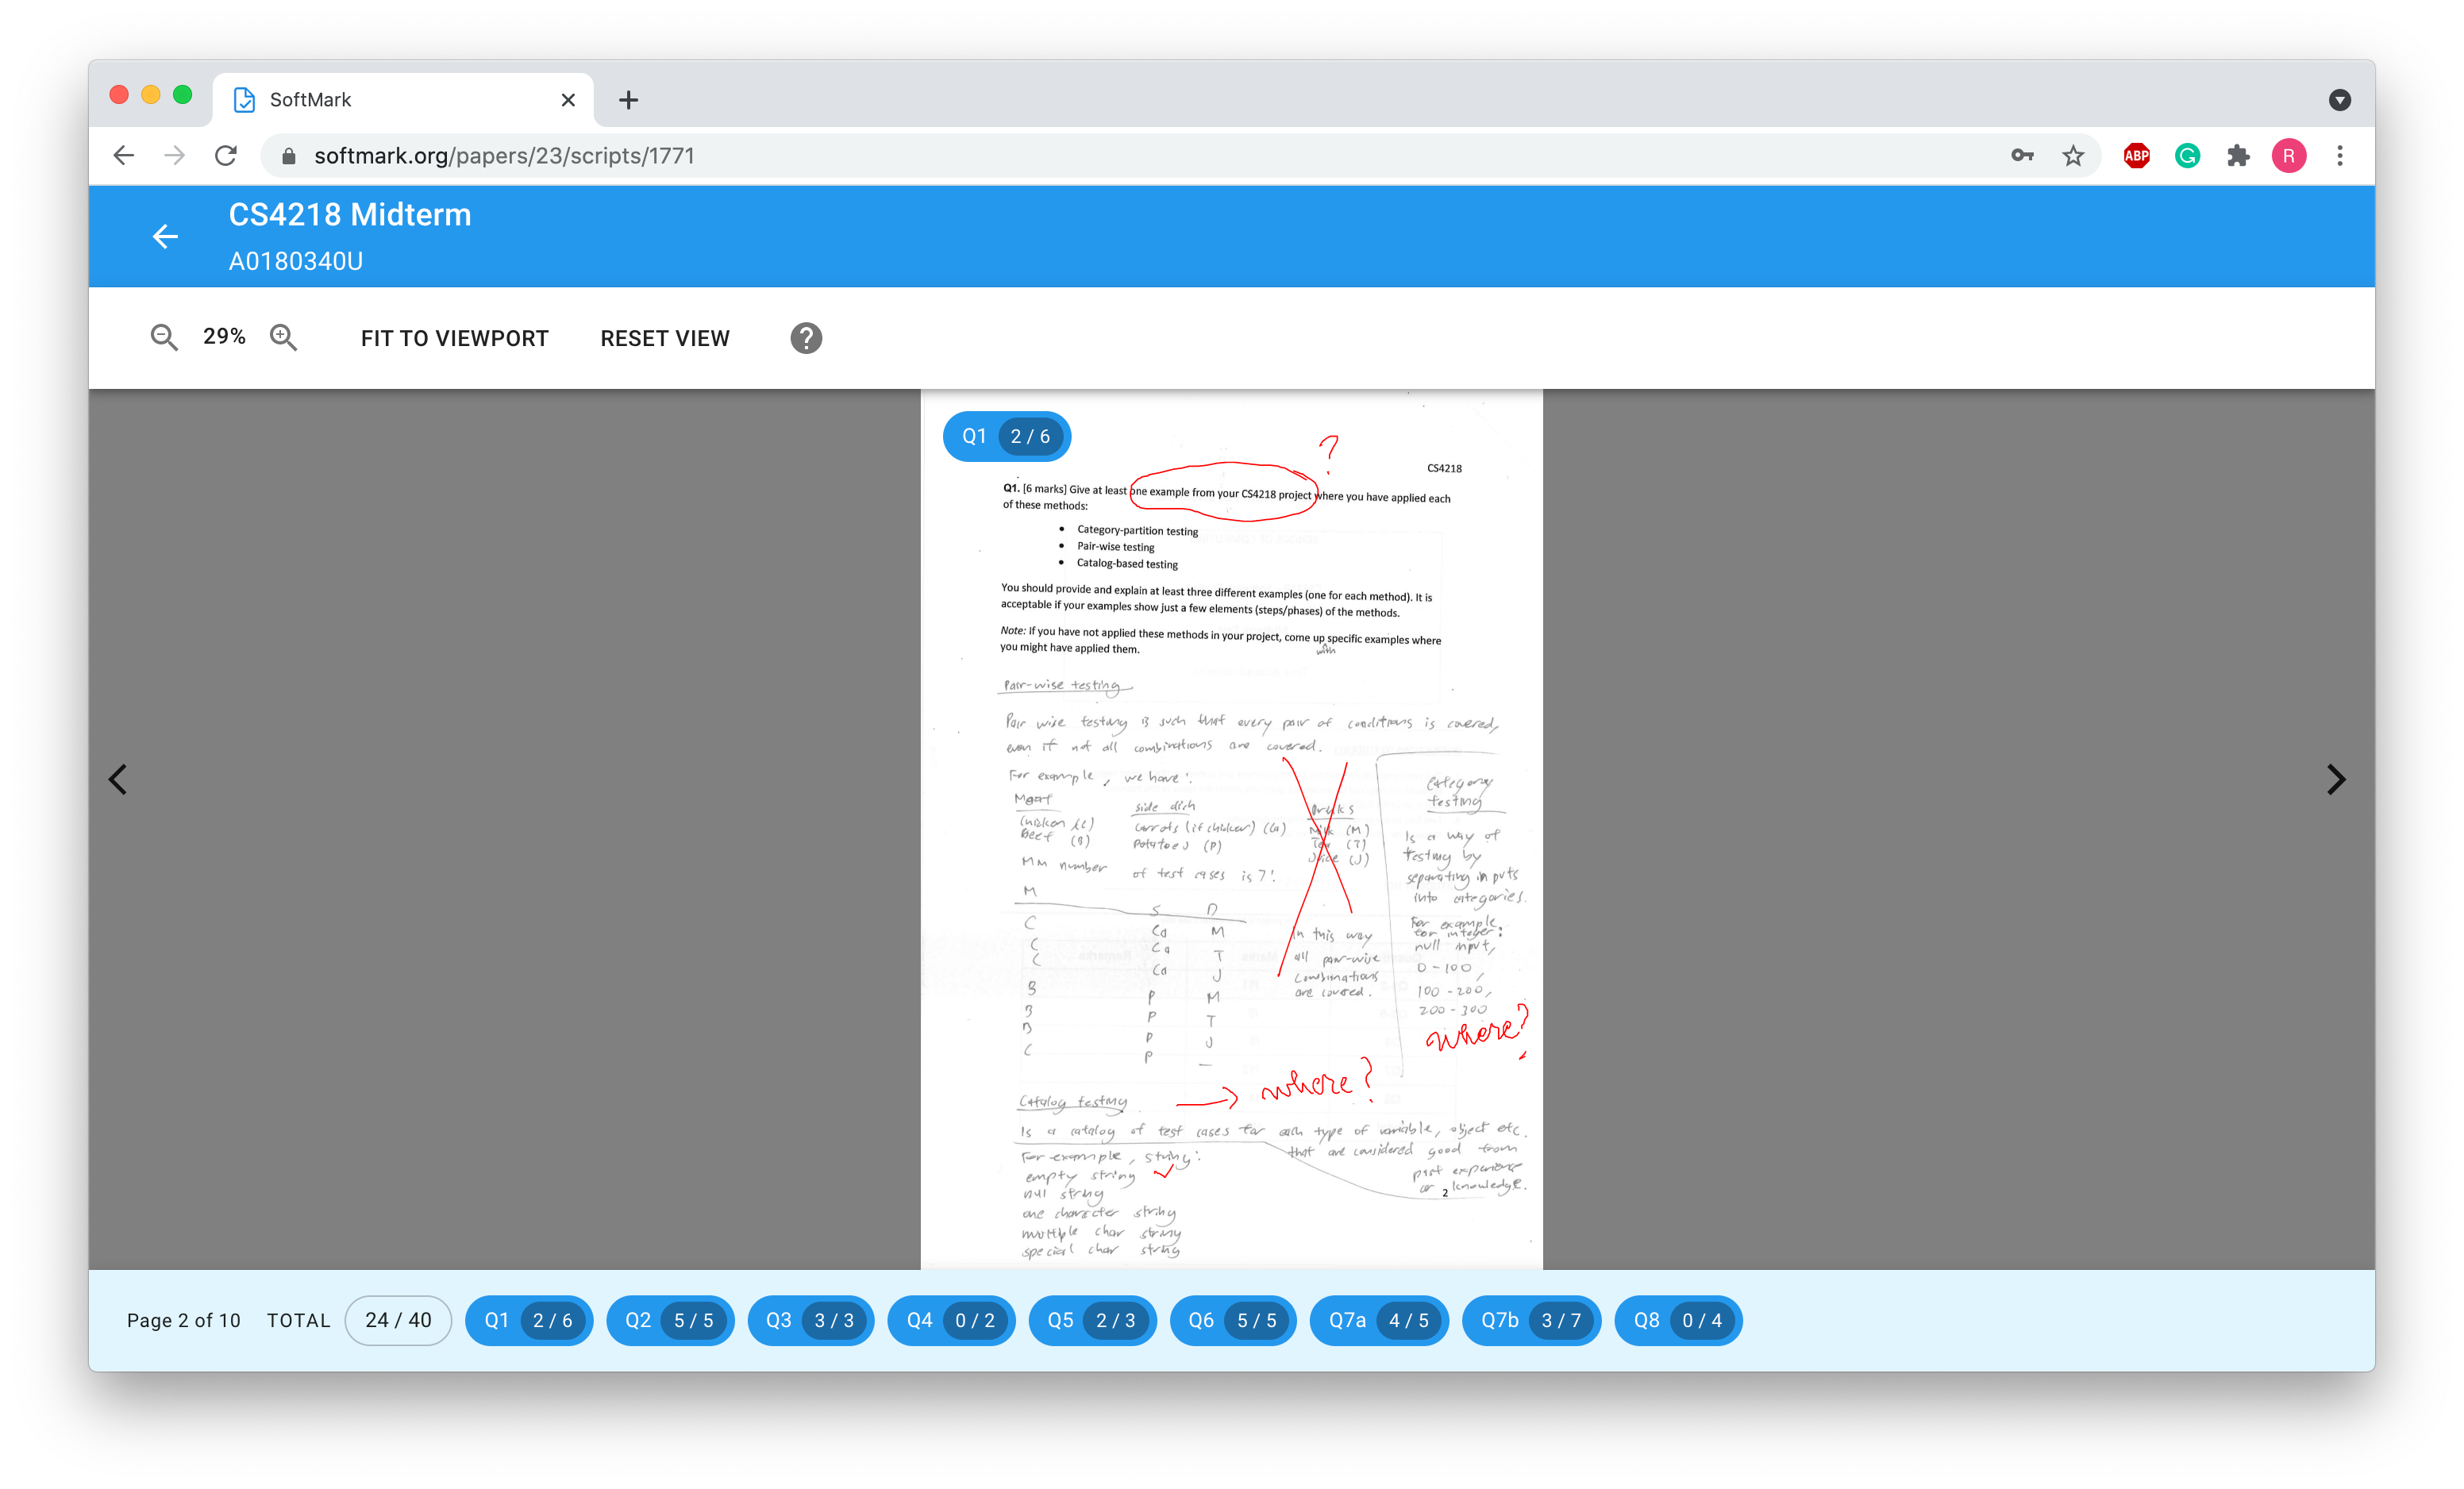 SoftMark
softmark.org/papers/23/scripts/1771
ABP
G
R
CS4218 Midterm
A0180340U
29%
FIT TO VIEWPORT
RESET VIEW
?
Q1 2 / 6
?
CS4218
Q1. [6 marks] Give at least one example from your CS4218 project where you have applied each
of these methods:
• Category-partition testing
• Pair-wise testing
• Catalog-based testing
You should provide and explain at least three different examples (one for each method). It is
acceptable if your examples show just a few elements (steps/phases) of the methods.
Note: If you have not applied these methods in your project, come up specific examples where
with
you might have applied them.
Pair-wise testing
Pair wise testing is such that every pair of conditions is covered,
even if not all combinations are covered.
For example, we have:
Meat
Chicken (C)
Beef (B)
side dish
carrots (if chicken) (Ca)
potatoes (P)
Drinks
Milk (M)
Tea (T)
Juice (J)
Min number of test cases is 7:
M S D
C Ca M
C Ca T
C Ca J
B P M
B P T
B P J
C P —
In this way
all pair-wise
combinations
are covered.
Category
testing
Is a way of
testing by
separating inputs
into categories.
For example,
for integer:
null input,
0-100,
100-200,
200-300
where?
Catalog testing → where?
Is a catalog of test cases for each type of variable, object etc.
that are considered good from
past experience
or knowledge.
For example, string:
empty string
null string
one character string
multiple char string
special char string
2
Page 2 of 10 TOTAL 24 / 40 Q1 2 / 6 Q2 5 / 5 Q3 3 / 3 Q4 0 / 2 Q5 2 / 3 Q6 5 / 5 Q7a 4 / 5 Q7b 3 / 7 Q8 0 / 4